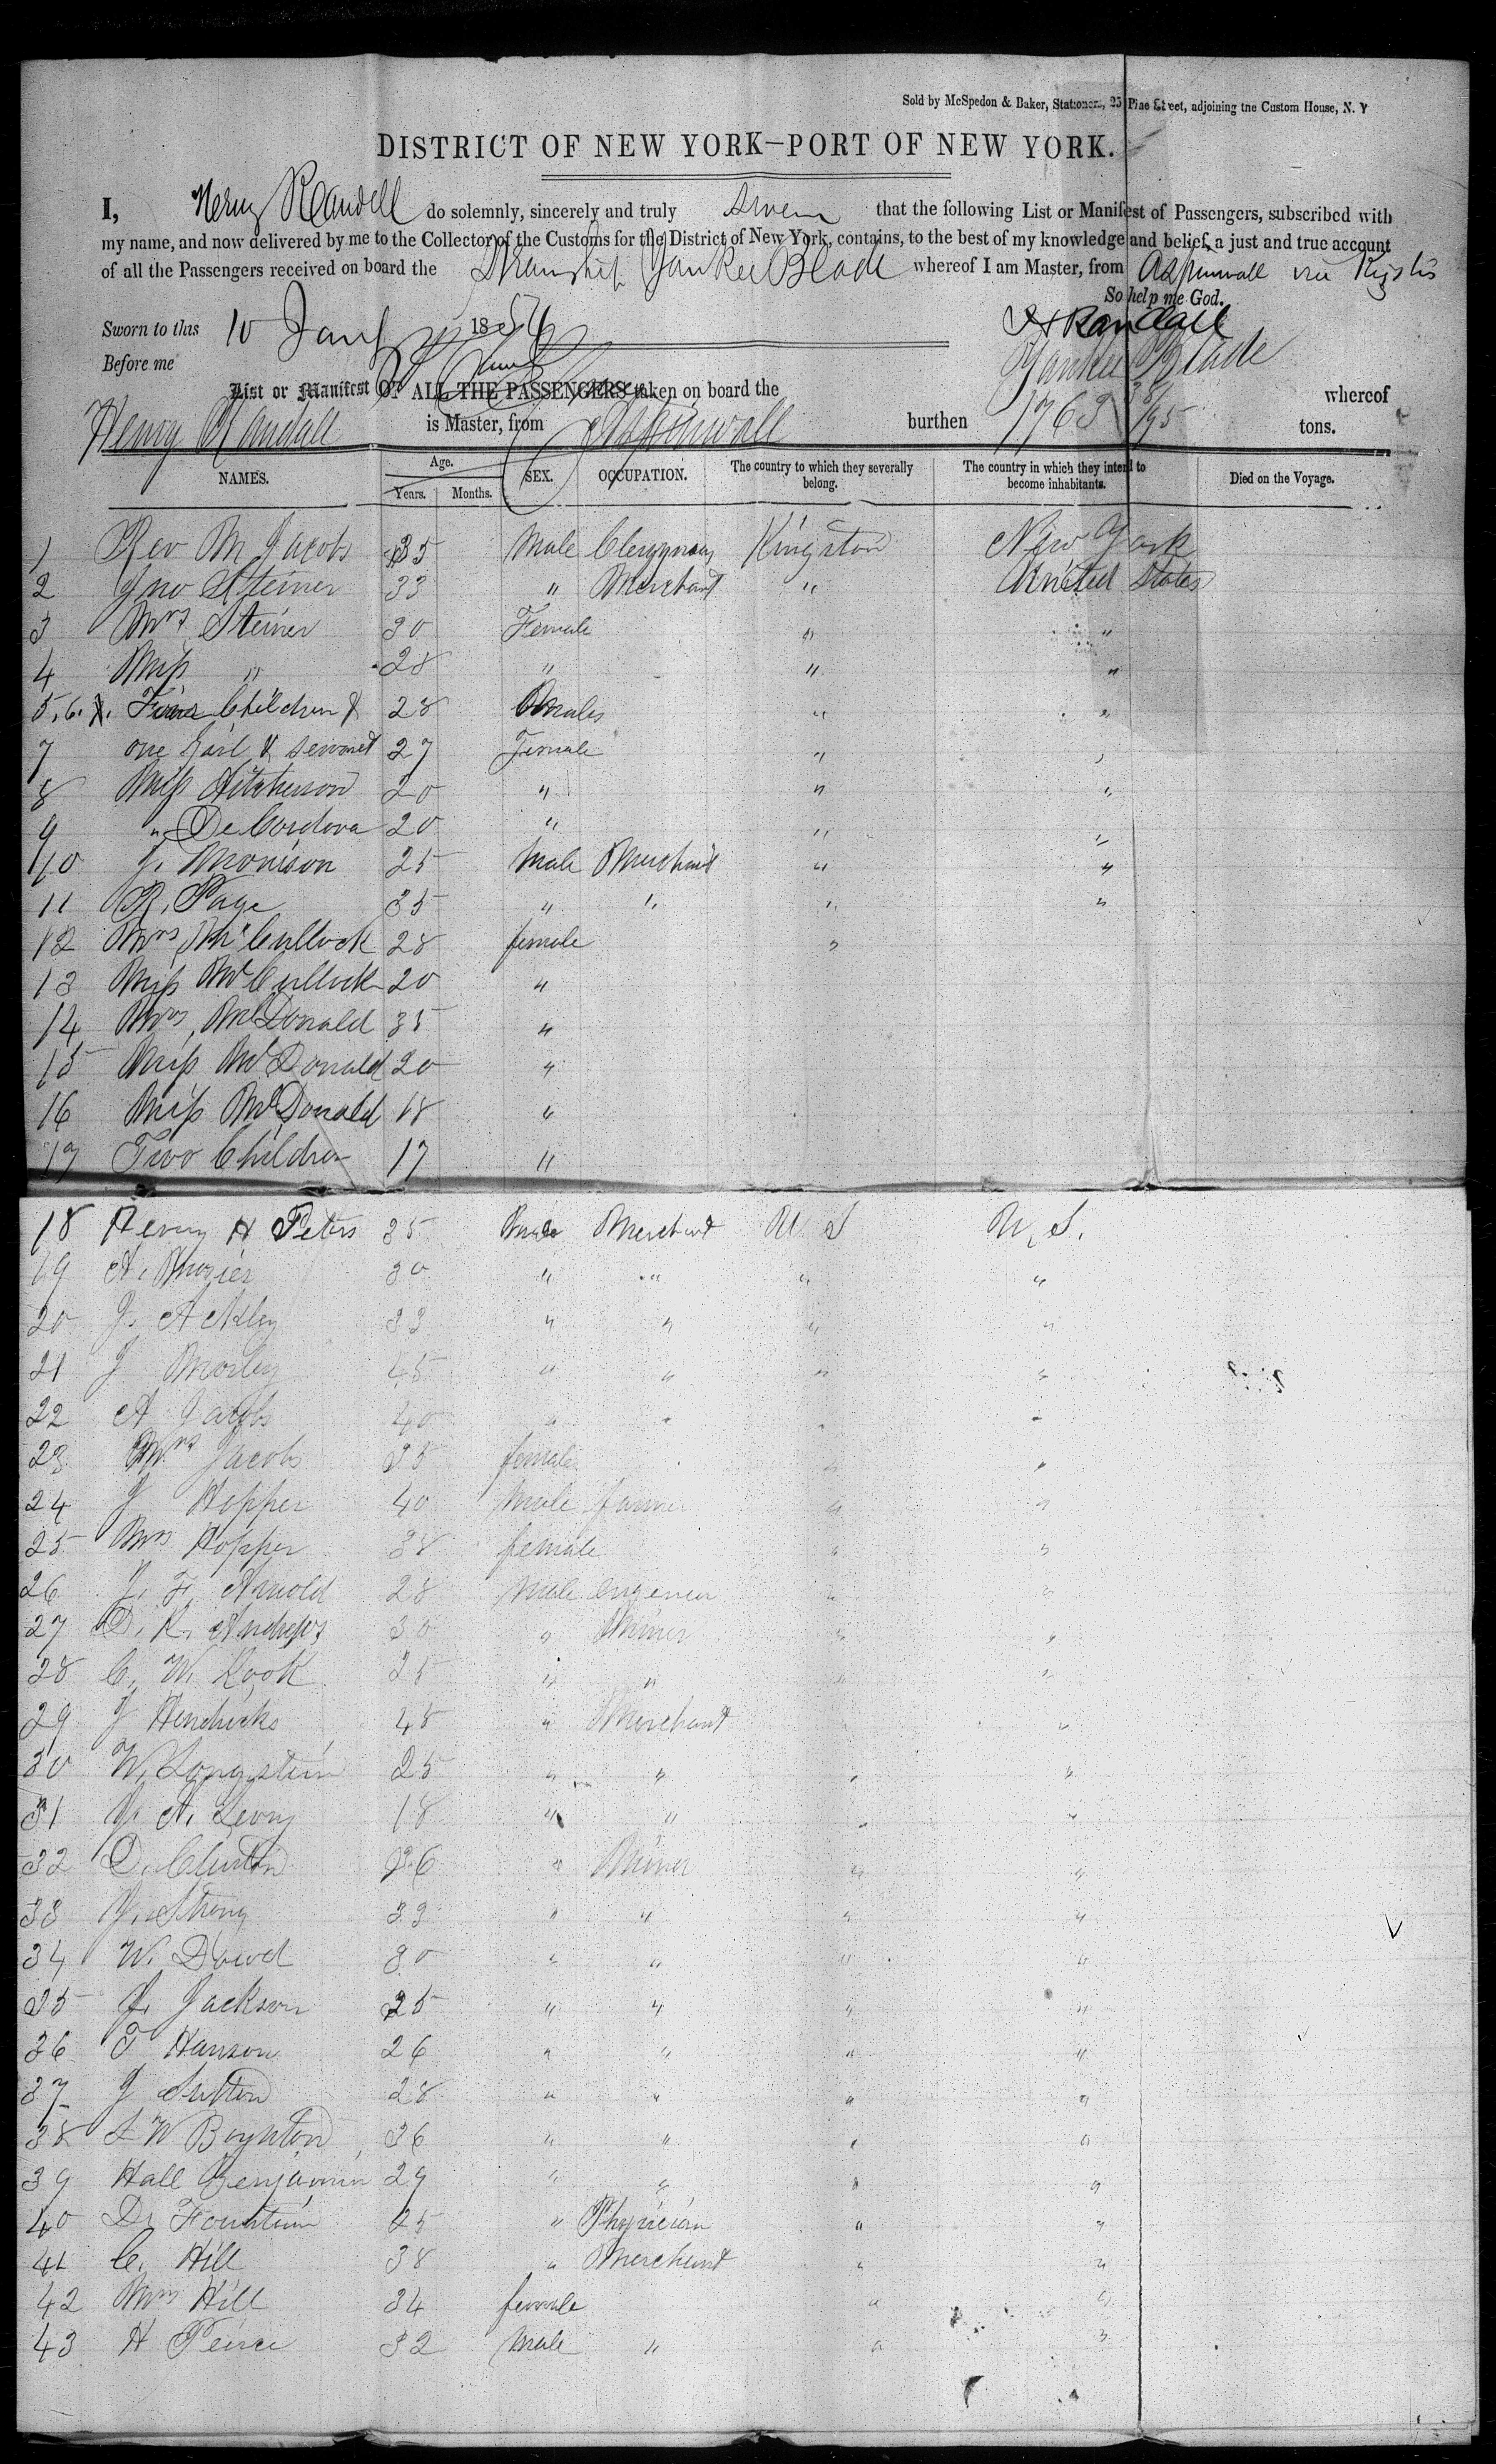 Sold by McSpedon & Baker, Stationers, 25 Pine Street, adjoining the Custom House, N. Y
DISTRICT OF NEW YORK—PORT OF NEW YORK.
I, Henry Randell do solemnly, sincerely and truly swear that the following List or Manifest of Passengers, subscribed with
my name, and now delivered by me to the Collector of the Customs for the District of New York, contains, to the best of my knowledge and belief, a just and true account
of all the Passengers received on board the Steamship Yankee Blade whereof I am Master, from Aspinwall via
So help me God.
Sworn to this 10 Jany 1854 H Randall
Before me Yankee Blade
List or Manifest OF ALL THE PASSENGERS taken on board the whereof
Henry Randall is Master, from Aspinwall burthen 1763 /95 tons.
NAMES. Age. Years. Months. SEX. OCCUPATION. The country to which they severally belong. The country in which they intend to become inhabitants. Died on the Voyage.
1 Rev M Jacobs 35 Male Clergyman Kingston New York
2 Jno Steiner 33 " Merchant " United States
3 Mrs Steiner 30 Female " "
4 Miss " 28 " " "
5, 6. Children & 28 males " "
7 one Girl & servant 27 Female " "
8 Miss Hitcherson 20 " " "
9 " De Cordova 20 " " "
10 J. Morrison 25 Male Merchant " "
11 R. Page 35 " " " "
12 Mrs McCullock 28 female "
13 Miss McCullock 20 "
14 Mrs McDonald 35 "
15 Miss McDonald 20 "
16 Miss McDonald 18 "
17 Two Children 17 "
18 Henry H Peters 35 Male Merchant U S U. S.
19 A. Mosier 30 " " " "
20 J. Ackley 33 " " " "
21 J Morley 45 " " " "
22 A Jacobs 40 " " " "
23 Mrs Jacobs 35 female " "
24 J Hopper 40 Male farmer " "
25 Mrs Hopper 38 female " "
26 J. F. Arnold 28 Male engeneer " "
27 D. R. Andrews 30 " Miner " "
28 C. W. Rook 25 " " " "
29 J Hendricks 45 " Merchant "
30 W. Longstein 25 " " " "
31 J. A. Levy 18 " " " "
32 D. Clinton 26 " Miner " "
33 J. Strong 33 " " " "
34 W. Dowd 30 " " " "
35 J. Jackson 25 " " " "
36 T Hanson 26 " " " "
37 J Sutton 28 " " " "
38 L W Boynton 36 " " " "
39 Hall Benjamin 29 " " " "
40 Dr Fountain 25 " Physician " "
41 C. Hill 38 " Merchant " "
42 Mrs Hill 34 female " "
43 H Peirce 32 Male " " "